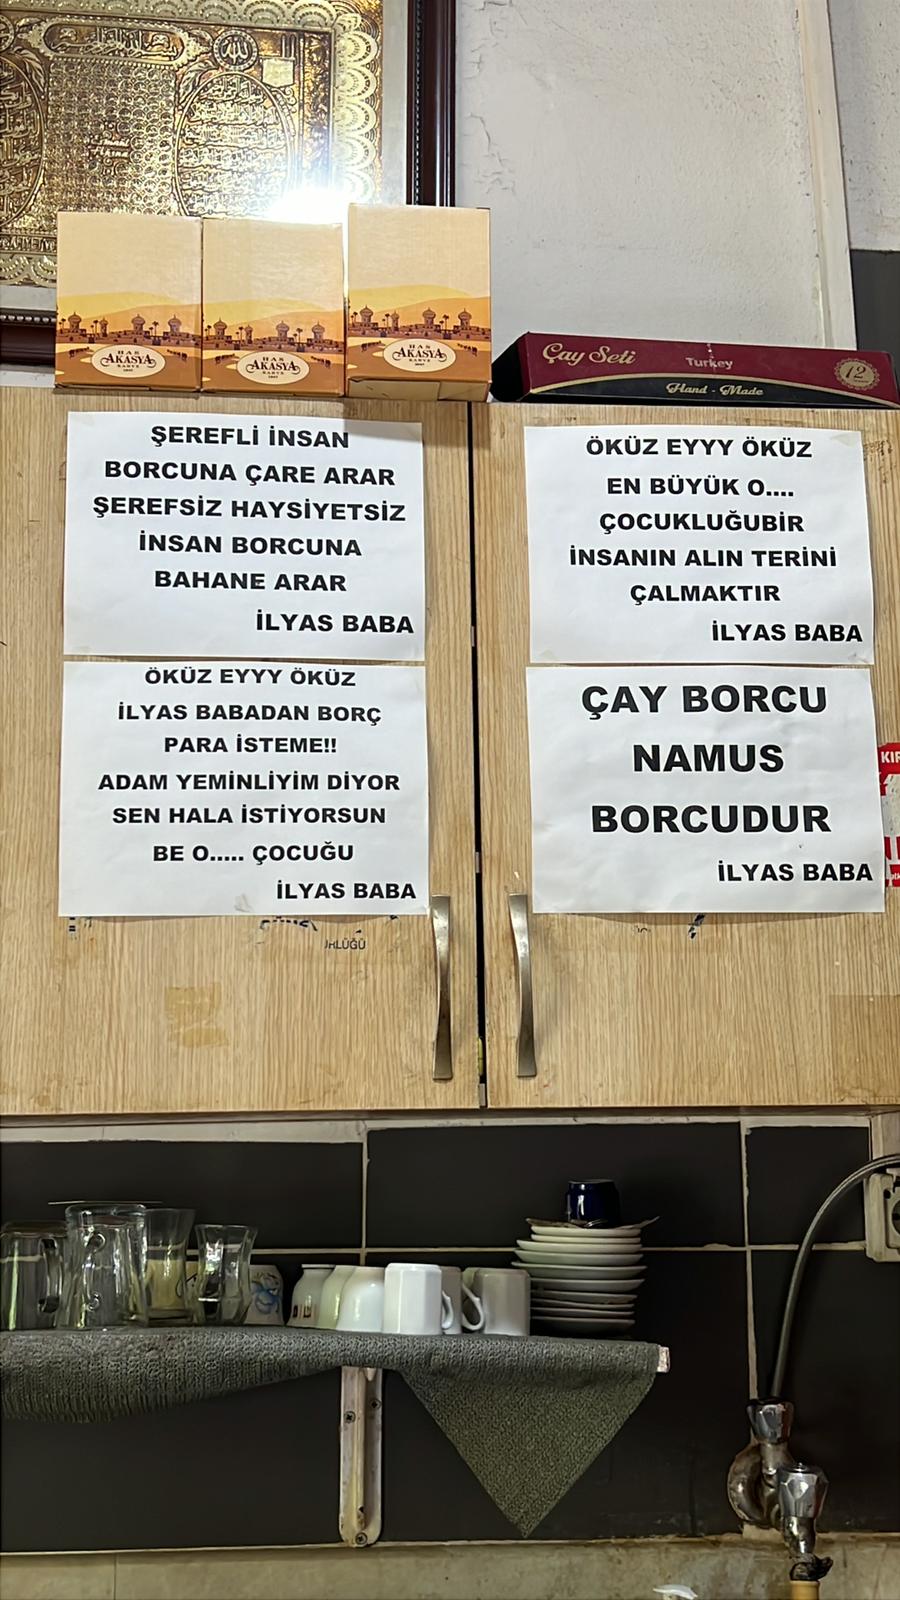 HAS
AKASYA
KAHVE
HAS
AKASYA
KAHVE
HAS
AKASYA
KAHVE
Çay Seti
Turkey
Hand - Made
12
ŞEREFLİ İNSAN
BORCUNA ÇARE ARAR
ŞEREFSİZ HAYSİYETSİZ
İNSAN BORCUNA
BAHANE ARAR
İLYAS BABA
ÖKÜZ EYYY ÖKÜZ
EN BÜYÜK O....
ÇOCUKLUĞUBİR
İNSANIN ALIN TERİNİ
ÇALMAKTIR
İLYAS BABA
ÖKÜZ EYYY ÖKÜZ
İLYAS BABADAN BORÇ
PARA İSTEME!!
ADAM YEMİNLİYİM DİYOR
SEN HALA İSTİYORSUN
BE O..... ÇOCUĞU
İLYAS BABA
ÇAY BORCU
NAMUS
BORCUDUR
İLYAS BABA